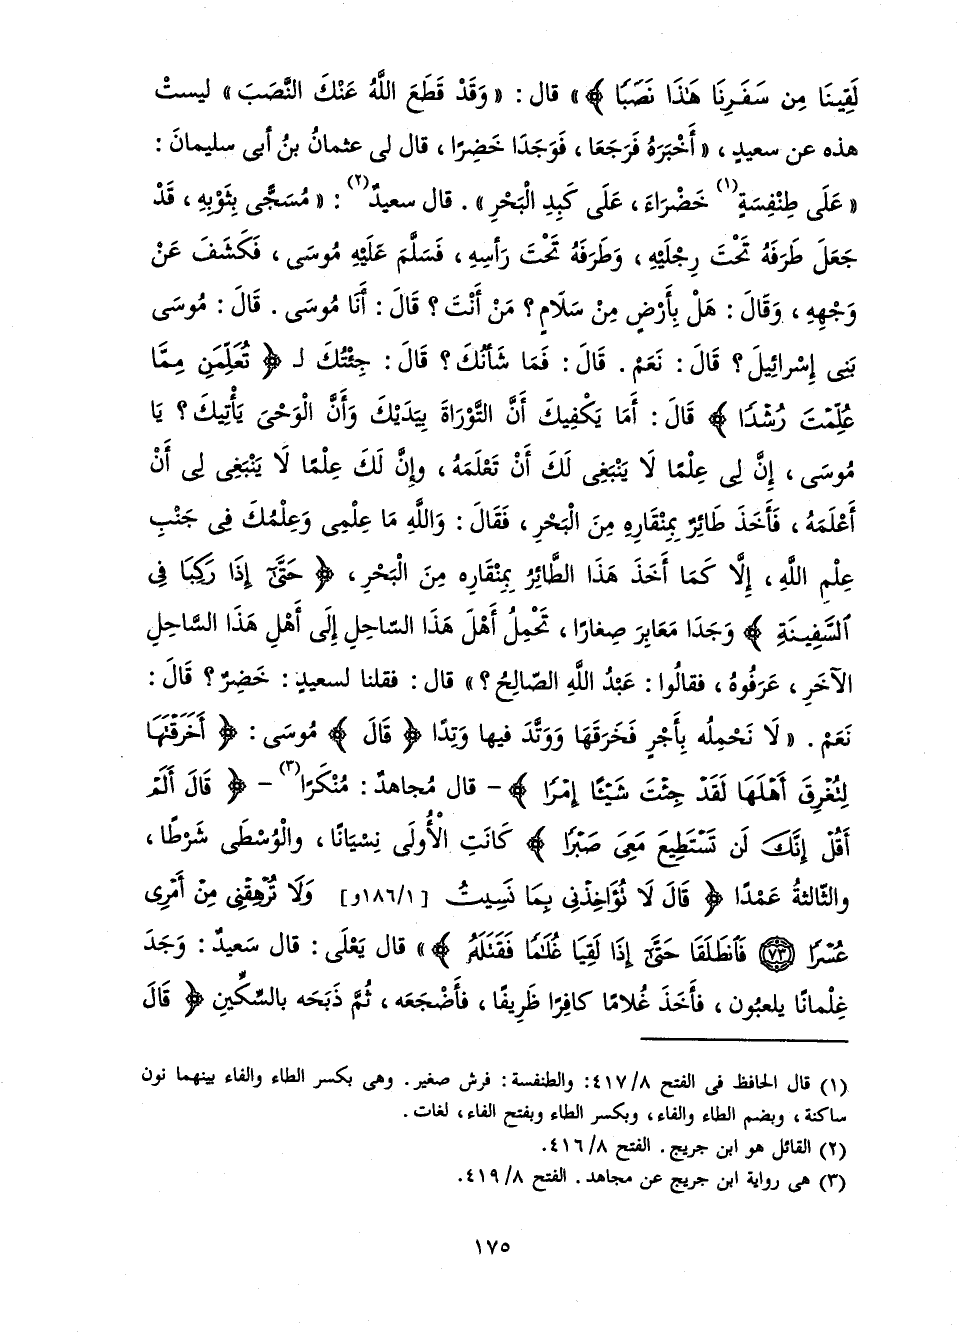 لَقِينَا مِن سَفَرِنَا هَٰذَا نَصَبًا ﴾» قال : « وَقَدْ قَطَعَ اللَّهُ عَنْكَ النَّصَبَ » ليستْ
هذه عن سعيدٍ ، « أَخْبَرَهُ فَرَجَعَا ، فَوَجَدَا خَضِرًا ، قال لى عثمانُ بنُ أبى سليمانَ :
« عَلَى طِنْفِسَةٍ(١) خَضْرَاءَ ، عَلَى كَبِدِ الْبَحْرِ » . قال سعيدٌ(٢) : « مُسَجًّى بِثَوْبِهِ ، قَدْ
جَعَلَ طَرَفَهُ تَحْتَ رِجْلَيْهِ ، وَطَرَفَهُ تَحْتَ رَأسِهِ ، فَسَلَّمَ عَلَيْهِ مُوسَى ، فَكَشَفَ عَنْ
وَجْهِهِ ، وَقَالَ : هَلْ بِأَرْضٍ مِنْ سَلَامٍ ؟ مَنْ أَنْتَ ؟ قَالَ : أَنَا مُوسَى . قَالَ : مُوسَى
بَنِى إِسْرائِيلَ ؟ قَالَ : نَعَمْ . قَالَ : فَمَا شَأنُكَ ؟ قَالَ : جِئْتُكَ لـ ﴿ تُعَلِّمَنِ مِمَّا
عُلِّمْتَ رُشْدًا ﴾ قَالَ : أَمَا يَكْفِيكَ أَنَّ التَّوْرَاةَ بِيَدَيْكَ وَأَنَّ الْوَحْىَ يَأْتِيكَ ؟ يَا
مُوسَى ، إِنَّ لِى عِلْمًا لَا يَنْبَغِى لَكَ أَنْ تَعْلَمَهُ ، وإِنَّ لَكَ عِلْمًا لَا يَنْبَغِى لِى أَنْ
أَعْلَمَهُ ، فَأَخَذَ طَائِرٌ بِمِنْقَارِهِ مِنَ الْبَحْرِ ، فَقَالَ : وَاللَّهِ مَا عِلْمِى وَعِلْمُكَ فِى جَنْبِ
عِلْمِ اللَّهِ ، إِلَّا كَمَا أَخَذَ هَذَا الطَّائِرُ بِمِنْقَارِه مِنَ الْبَحْرِ ، ﴿ حَتَّىٰٓ إِذَا رَكِبَا فِى
ٱلسَّفِينَةِ ﴾ وَجَدَا مَعَابِرَ صِغارًا ، تَحْمِلُ أَهْلَ هَذَا السّاحِلِ إِلَى أَهْلِ هَذَا السَّاحِلِ
الآخَرِ ، عَرَفُوهُ ، فقالُوا : عَبْدُ اللَّهِ الصّالِحُ ؟ » قال : فقلنا لسعيدٍ : خَضِرٌ ؟ قَالَ :
نَعَمْ . « لَا نَحْمِلُه بِأَجْرٍ فَخَرَقَهَا وَوَتَّدَ فيها وَتِدًا ﴿ قَالَ ﴾ مُوسَى : ﴿ أَخَرَقْتَهَا
لِتُغْرِقَ أَهْلَهَا لَقَدْ جِئْتَ شَيْئًا إِمْرًا ﴾ - قال مُجاهدٌ : مُنْكَرًا(٣) - ﴿ قَالَ أَلَمْ
أَقُلْ إِنَّكَ لَن تَسْتَطِيعَ مَعِىَ صَبْرًا ﴾ كَانَتِ الْأُولَى نِسْيَانًا ، والْوُسْطَى شَرْطًا ،
والثّالثةُ عَمْدًا ﴿ قَالَ لَا تُؤَاخِذْنِى بِمَا نَسِيتُ [١٨٦/١و] وَلَا تُرْهِقْنِى مِنْ أَمْرِى
عُسْرًا ﴿٧٣﴾ فَٱنطَلَقَا حَتَّىٰٓ إِذَا لَقِيَا غُلَامًا فَقَتَلَهُۥ ﴾ » قال يَعْلَى : قال سَعيدٌ : وَجَدَ
غِلْمانًا يلعبُون ، فأَخَذَ غُلامًا كافِرًا ظَرِيفًا ، فأَضْجَعَه ، ثُمَّ ذَبَحَه بالسِّكِّينِ ﴿ قَالَ
(١) قال الحافظ فى الفتح ٤١٧/٨: والطنفسة : فرش صغير . وهى بكسر الطاء والفاء بينهما نون
ساكنة ، وبضم الطاء والفاء ، وبكسر الطاء وبفتح الفاء ، لغات .
(٢) القائل هو ابن جريج . الفتح ٤١٦/٨.
(٣) هى رواية ابن جريج عن مجاهد . الفتح ٤١٩/٨.
١٧٥